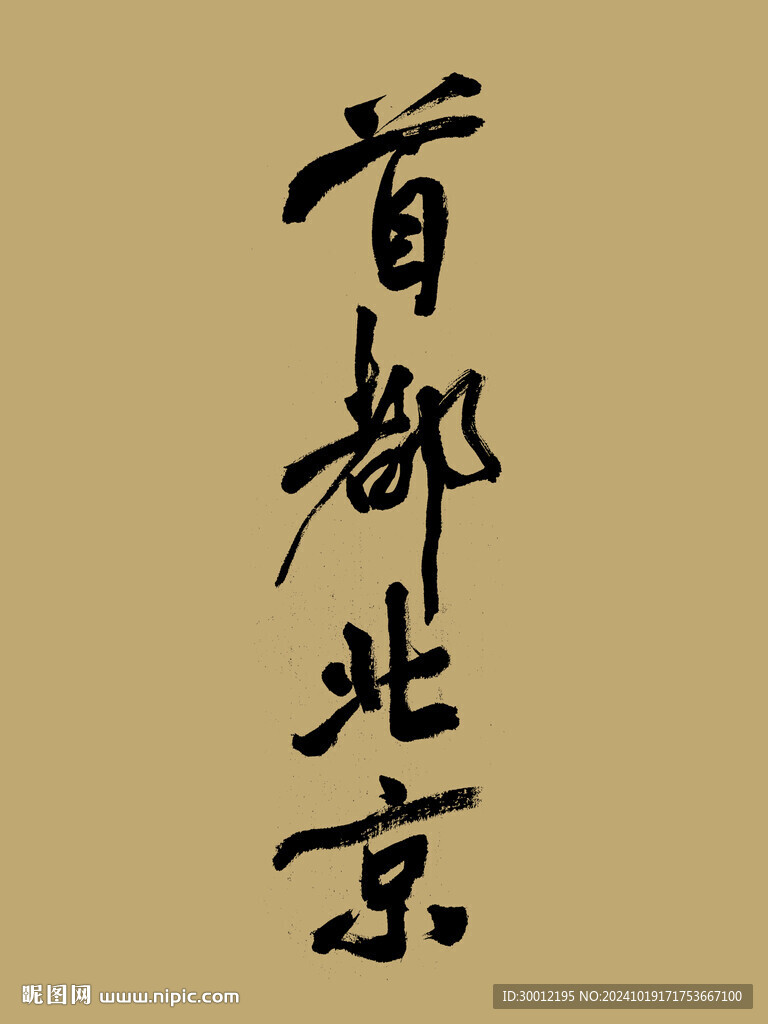 首都北京
昵图网 www.nipic.com
ID:30012195 NO:20241019171753667100